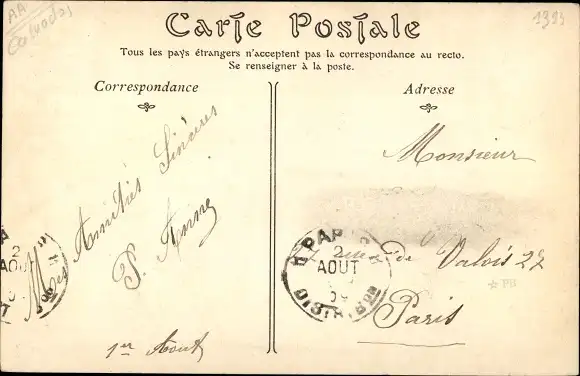 AA
Calvados
1393
Carte Postale
Tous les pays étrangers n'acceptent pas la correspondance au recto.
Se renseigner à la poste.
Correspondance
Mes Amitiés Sincères
P. Anne
1er Août
2
AOUT
Adresse
Monsieur
27 rue de Valois 27
Paris
PARIS
2
AOUT
DISTRIBON
PB